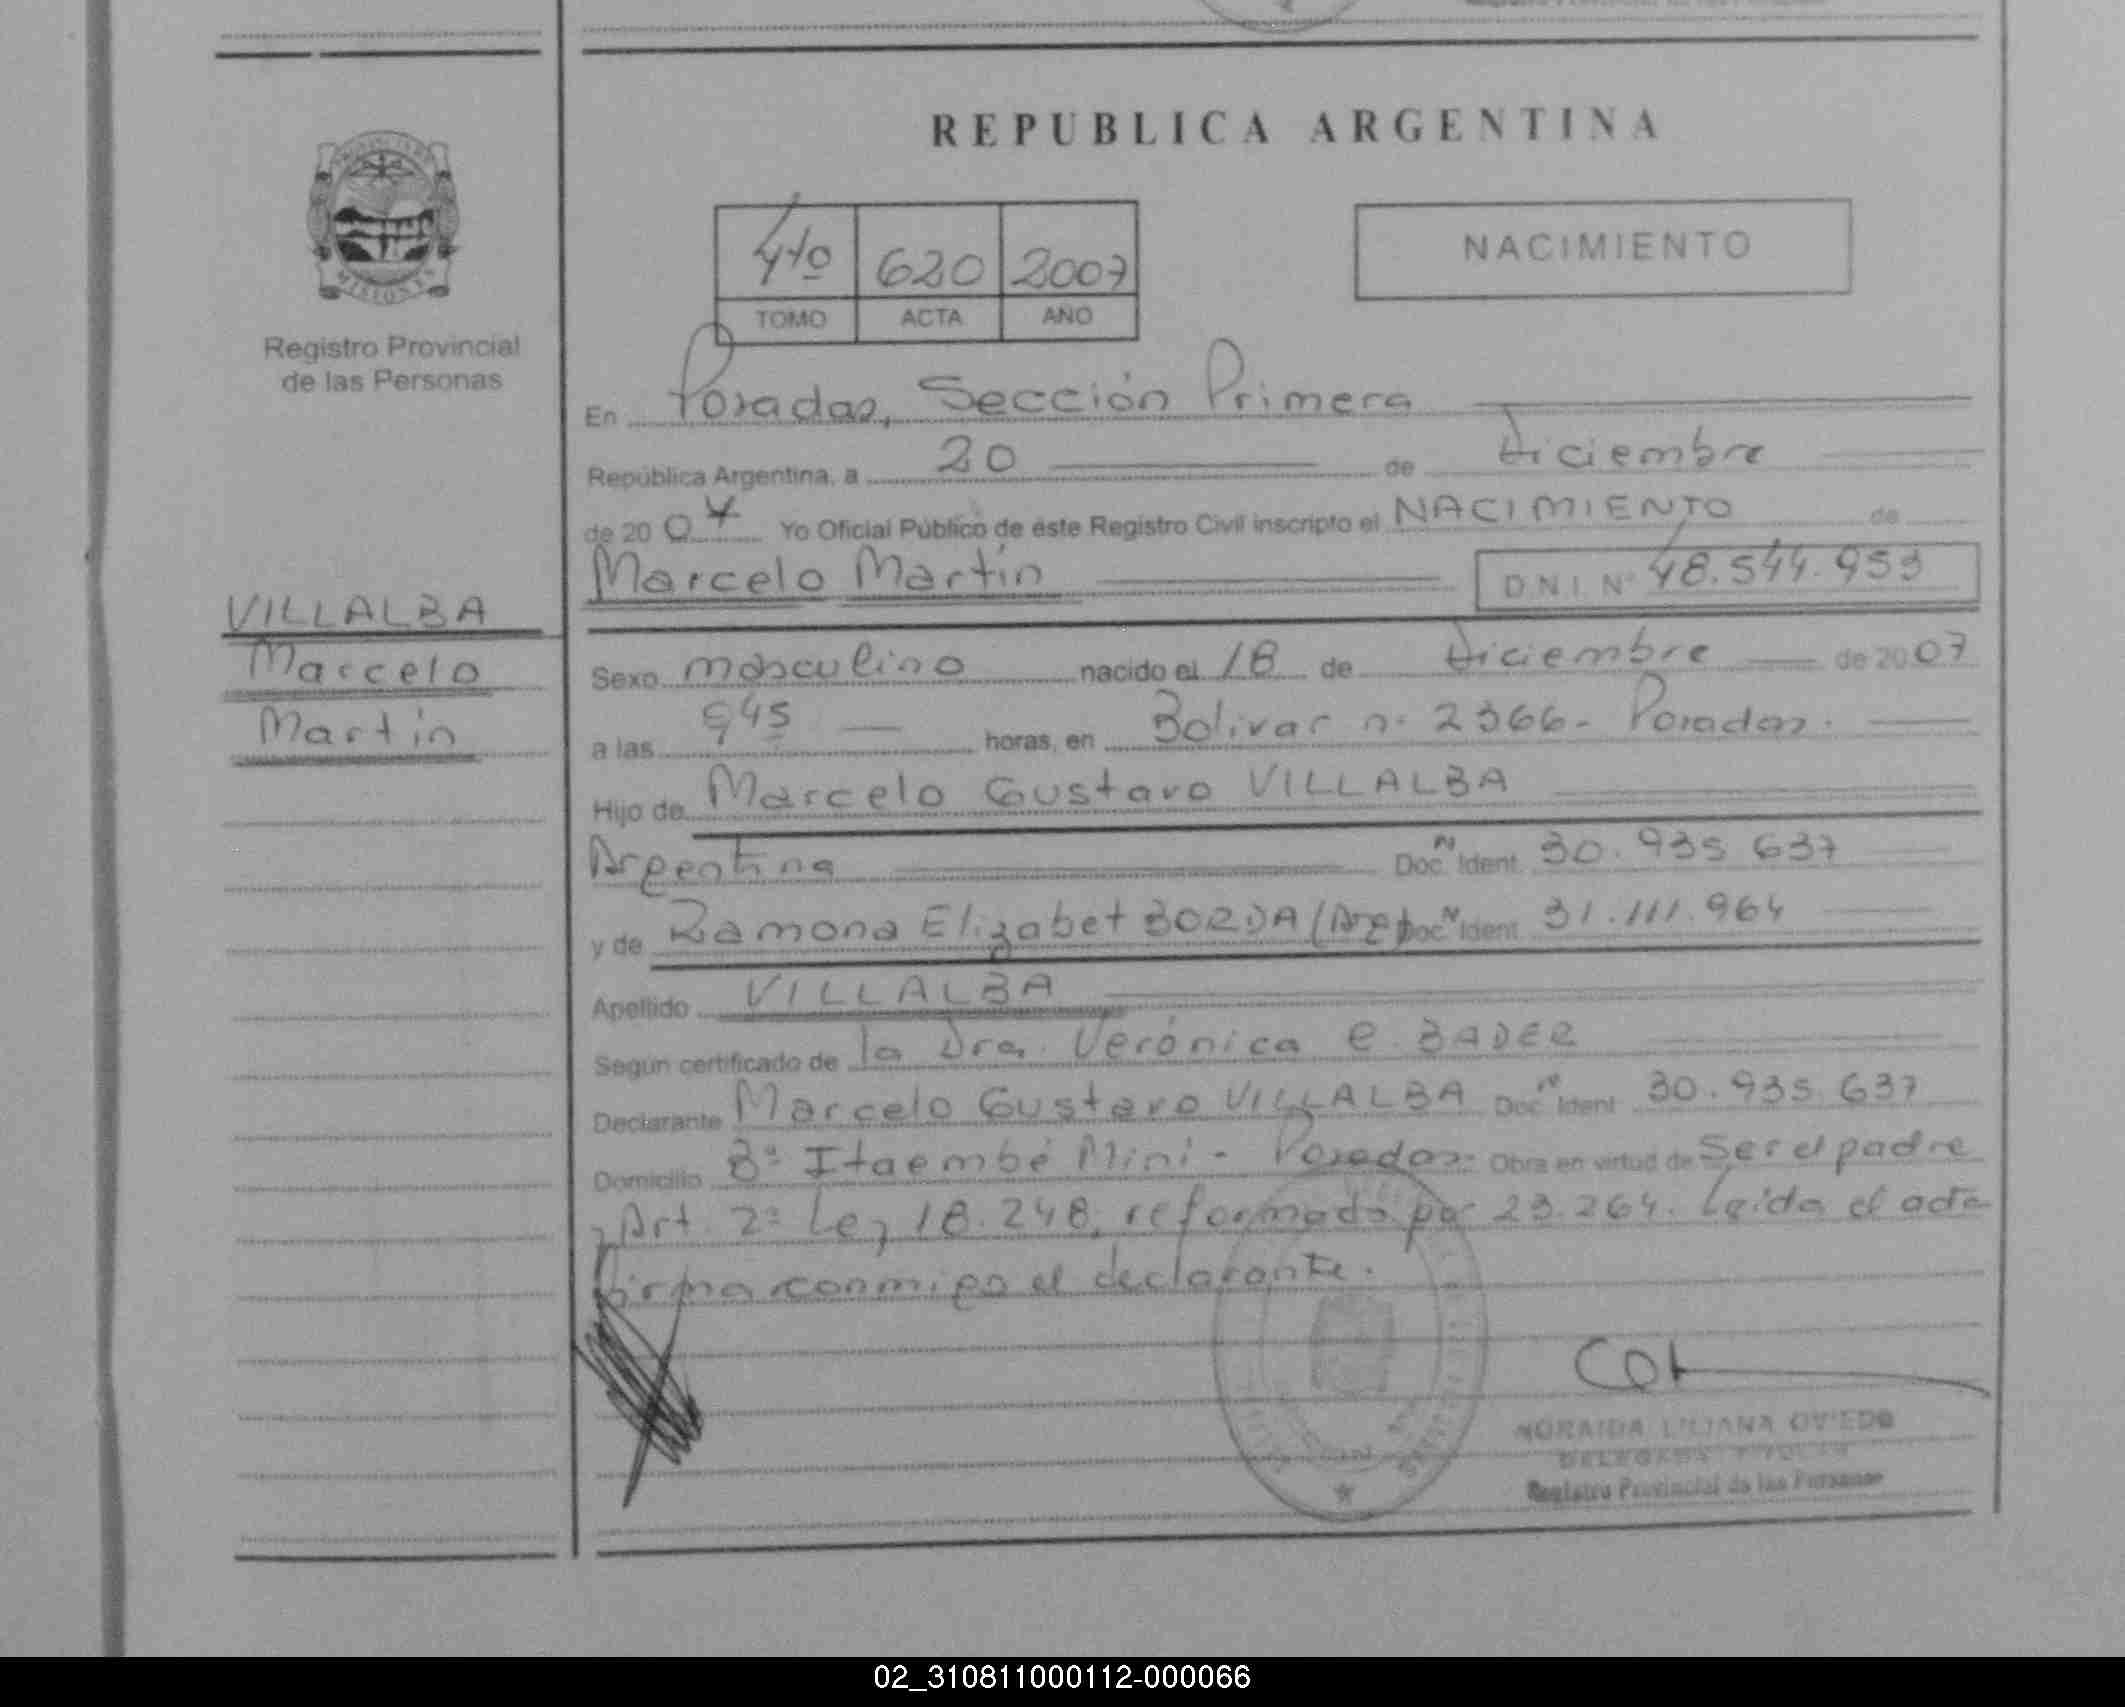 REPUBLICA ARGENTINA
4to 620 2007
TOMO ACTA AÑO
NACIMIENTO
MISIONES
Registro Provincial
de las Personas
VILLALBA
Marcelo
Martín
En Posadas, Sección Primera
República Argentina, a 20 de diciembre
de 2007 Yo Oficial Público de éste Registro Civil inscripto el NACIMIENTO de
Marcelo Martín D.N.I. Nº 48.544.953
Sexo masculino nacido el 18 de diciembre de 2007
a las 945 horas, en Bolivar n. 2366- Posadas.
Hijo de Marcelo Gustavo VILLALBA
Argentina Doc. N Ident. 30.935.637
y de Ramona Elizabet BORDA (Arg) Doc. N Ident. 31.111.964
Apellido VILLALBA
Según certificado de la Dra. Verónica E. BADER
Declarante Marcelo Gustavo VILLALBA Doc. N Ident. 30.935.637
Domicilio Bº Itaembé Mini - Posadas- Obra en virtud de Ser el padre
y Art. 2º Ley 18.248, reformado por 23.264. Leída el acta
firma conmigo el declarante.
LILIANA OVIEDO
DELEGADA TITULAR
Registro Provincial de las Personas
02_310811000112-000066